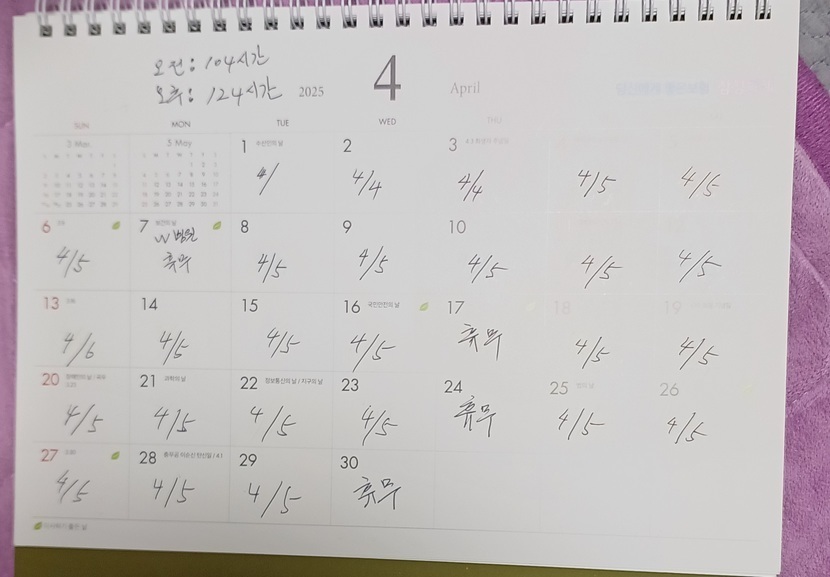 오전: 104시간
오후: 124시간 2025 4 April
SUN MON TUE WED THU
5 May
1 2 3
4/ 4/4 4/4 4/5 4/5
6 7 8 9 10
병원
4/5 휴무 4/5 4/5 4/5 4/5 4/5
13 14 15 16 국민안전의 날 17 18 19
4/6 4/5 4/5 4/5 휴무 4/5 4/5
20 21 과학의 날 22 정보통신의 날 / 지구의 날 23 24 25 26
4/5 4/5 4/5 4/5 휴무 4/5 4/5
27 28 충무공 이순신 탄신일 / 4.1 29 30
4/5 4/5 4/5 휴무